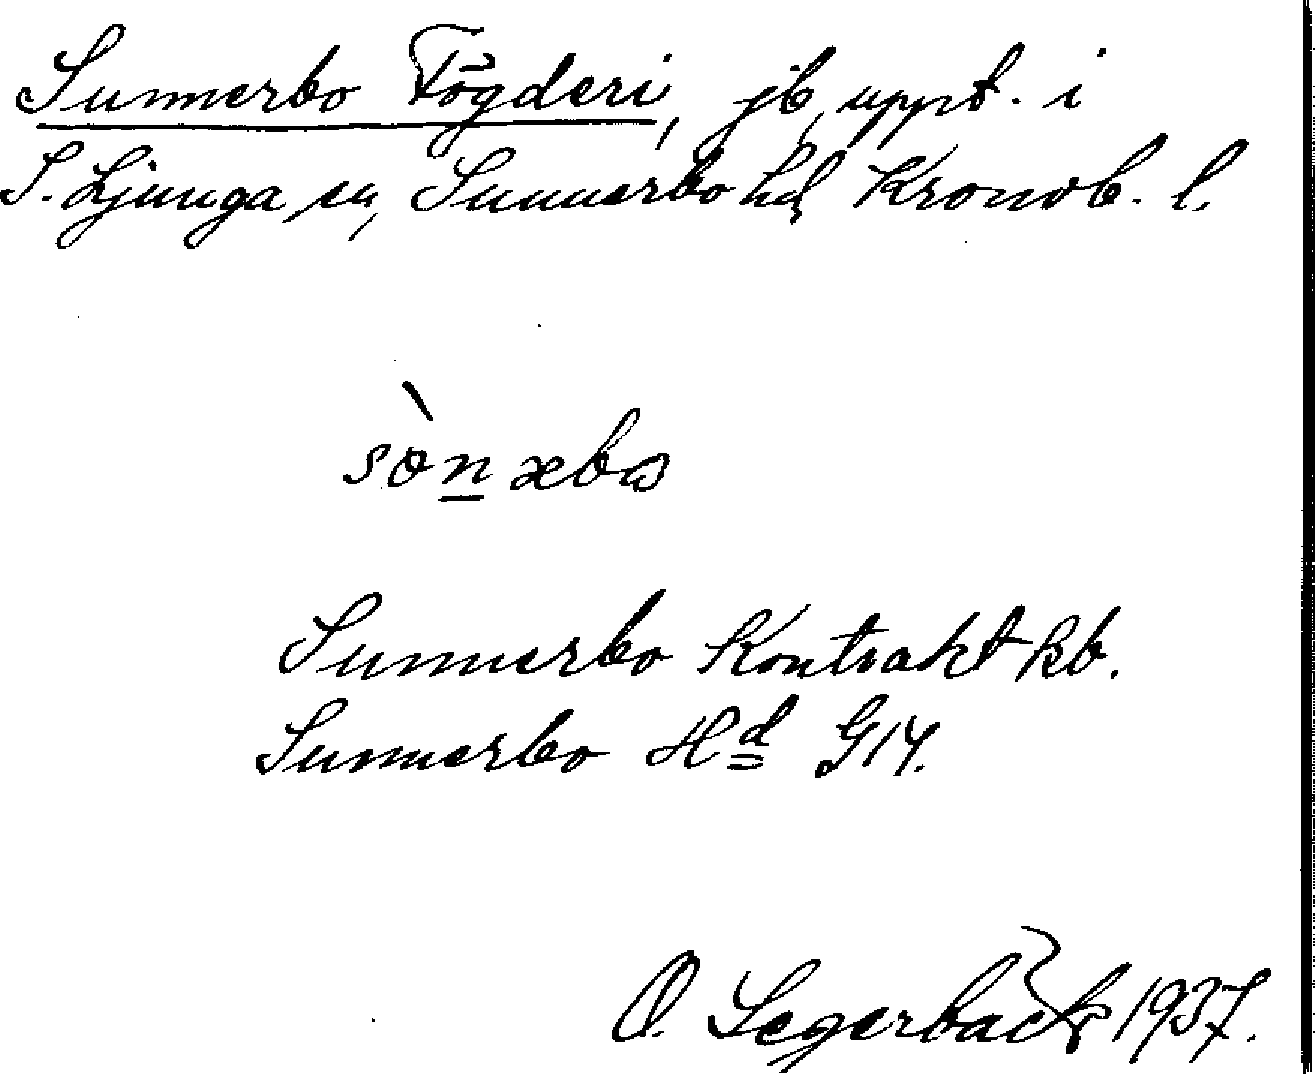 Sunnerbo Fögderi, jb, uppt. i
S. Ljunga sn, Sunnerbo hd, Kronob. l.
sònæbω
Sunnerbo Kontrakt kb.
Sunnerbo Hd G14.
O. Segerbäck 1937.